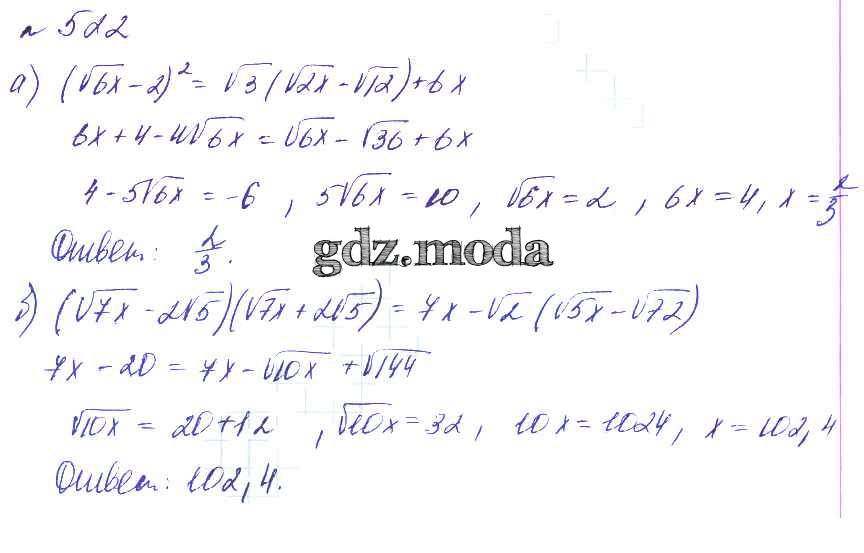 № 522
а) (√6x − 2)² = √3(√2x − √12) + 6x
6x + 4 − 4√6x = √6x − √36 + 6x
4 − 5√6x = −6 , 5√6x = 10 , √6x = 2 , 6x = 4, x = 2/3
Ответ: 2/3.
gdz.moda
б) (√7x − 2√5)(√7x + 2√5) = 7x − √2 (√5x − √72)
7x − 20 = 7x − √10x + √144
√10x = 20 + 12 , √10x = 32 , 10x = 1024, x = 102,4
Ответ: 102,4.